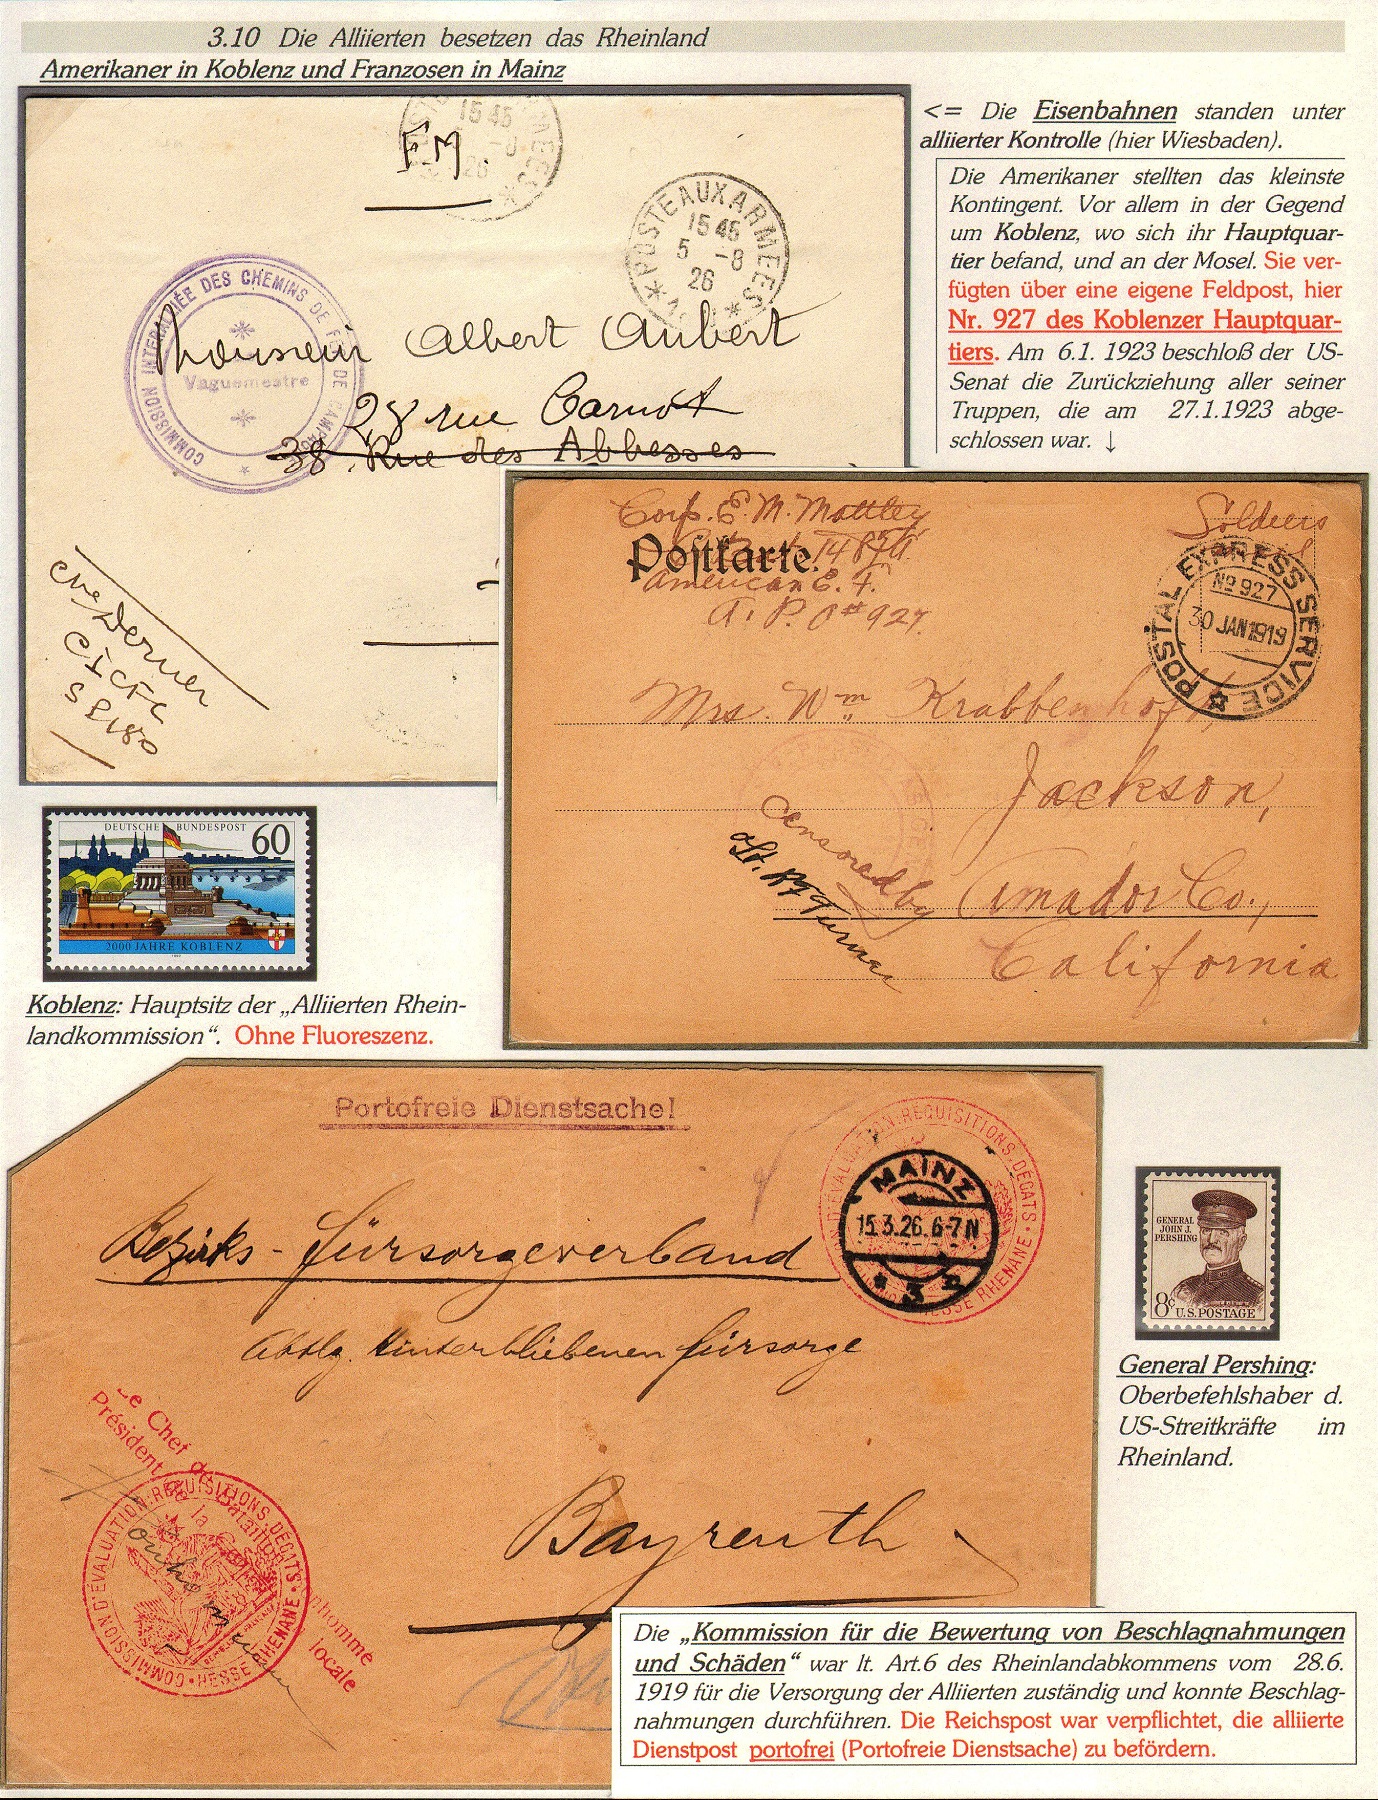 3.10 Die Alliierten besetzen das Rheinland
Amerikaner in Koblenz und Franzosen in Mainz
<= Die Eisenbahnen standen unter
alliierter Kontrolle (hier Wiesbaden).
Die Amerikaner stellten das kleinste
Kontingent. Vor allem in der Gegend
um Koblenz, wo sich ihr Hauptquar-
tier befand, und an der Mosel. Sie ver-
fügten über eine eigene Feldpost, hier
Nr. 927 des Koblenzer Hauptquar-
tiers. Am 6.1. 1923 beschloß der US-
Senat die Zurückziehung aller seiner
Truppen, die am 27.1.1923 abge-
schlossen war. ↓
FM
15 45
26
POSTE AUX ARMEES
15 45
5 -8
26
COMMISSION INTERALLIÉE DES CHEMINS DE FER DE CAMPAGNE
Vaguemestre
Monsieur Albert Aubert
28 rue Carnot
38 Rue des Abbesses
Derner
CICFC
SP 180
Corp. E. M. Mottley
American E. F.
A. P. O # 927.
Soldiers
Postkarte.
POSTAL EXPRESS SERVICE
No 927
30 JAN 1919
Mrs. Wm Krabbenhoft,
Jackson,
Amador Co.,
California
Censored by
DEUTSCHE BUNDESPOST
60
2000 JAHRE KOBLENZ
1992
Koblenz: Hauptsitz der „Alliierten Rhein-
landkommission“. Ohne Fluoreszenz.
Portofreie Dienstsache!
COMMISSION D'ÉVALUATION: RÉQUISITIONS, DÉGATS · HESSE RHENANE
MAINZ
15.3.26.6-7N
* 3 *
Bezirks-fürsorgeverband
Abtlg. Hinterbliebenenfürsorge
Bayreuth
Le Chef de Bataillon
Président de la
locale
COMMISSION D'ÉVALUATION: RÉQUISITIONS, DÉGATS · HESSE RHENANE
GENERAL
JOHN J.
PERSHING
8c U.S. POSTAGE
General Pershing:
Oberbefehlshaber d.
US-Streitkräfte im
Rheinland.
Die „Kommission für die Bewertung von Beschlagnahmungen
und Schäden“ war lt. Art.6 des Rheinlandabkommens vom 28.6.
1919 für die Versorgung der Alliierten zuständig und konnte Beschlag-
nahmungen durchführen. Die Reichspost war verpflichtet, die alliierte
Dienstpost portofrei (Portofreie Dienstsache) zu befördern.